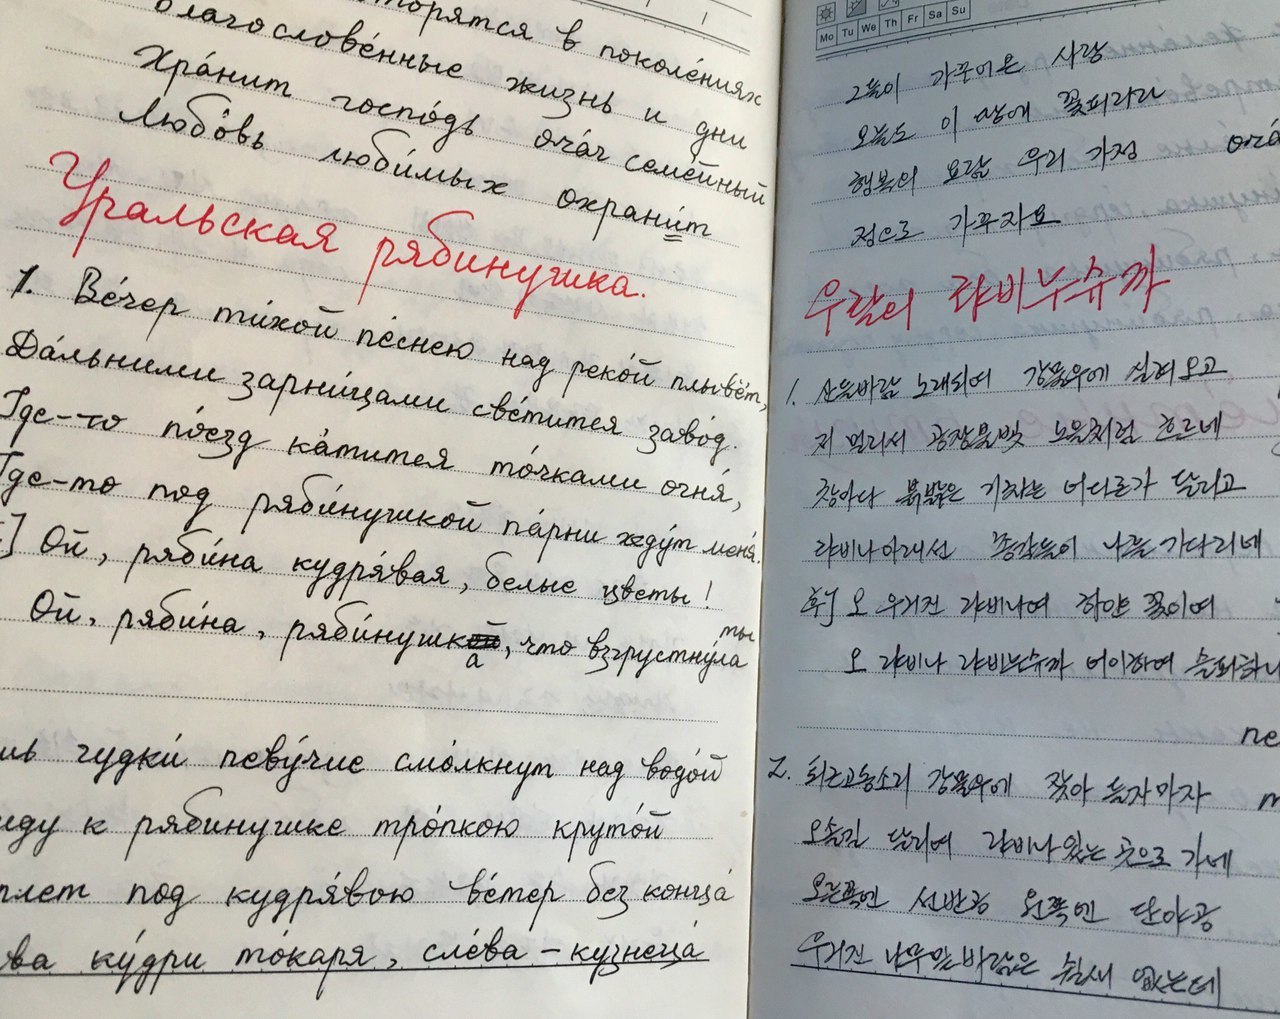 творятся в поколениях
благослове́нные жизнь и дни
Хра́нит госпо́дь оча́г семе́йный
Любо́вь люби́мых охрани́т
Уральская рябинушка.
1. Ве́чер ти́хой пе́снею над реко́й плывёт,
Да́льними зарни́цами све́тится заво́д.
Где-то по́езд ка́тится то́чками огня́,
Где-то под ряби́нушкой па́рни жду́т меня́.
] Ой, ряби́на кудря́вая, белые цветы!
Ой, ряби́на, ряби́нушка, что взгрустну́ла ты
гудки́ певу́чие смо́лкнут над водо́й
иду к рябинушке тро́пкою круто́й
плет под кудря́вою ве́тер без конца́
ва ку́дри то́каря, сле́ва – кузнеца́
Mo Tu We Th Fr Sa Su
그들이 가꾸어온 사랑
오늘도 이 땅에 꽃피라라
행복의 요람 우리 가정 оча́
정으로 가꾸자요
우랄의 랴비누슈까
1. 산들바람 노래되여 강물우에 실려오고
저 멀리서 공장불빛 노을처럼 흐르네
창마다 붉밝은 기차는 어디론가 달리고
랴비나아래선 총각들이 나를 기다리네
[후] 오 우거진 랴비나여 하얀 꽃이여
오 랴비나 랴비누슈까 어이하여 슬퍼하니
пе
2. 퇴근고동소리 강물우에 잦아 들자마자
오솔길 달리여 랴비나 있는 곳으로 가네
오른쪽엔 선반공 왼쪽엔 단야공
우거진 나무밑 바람은 쉴새 없는데